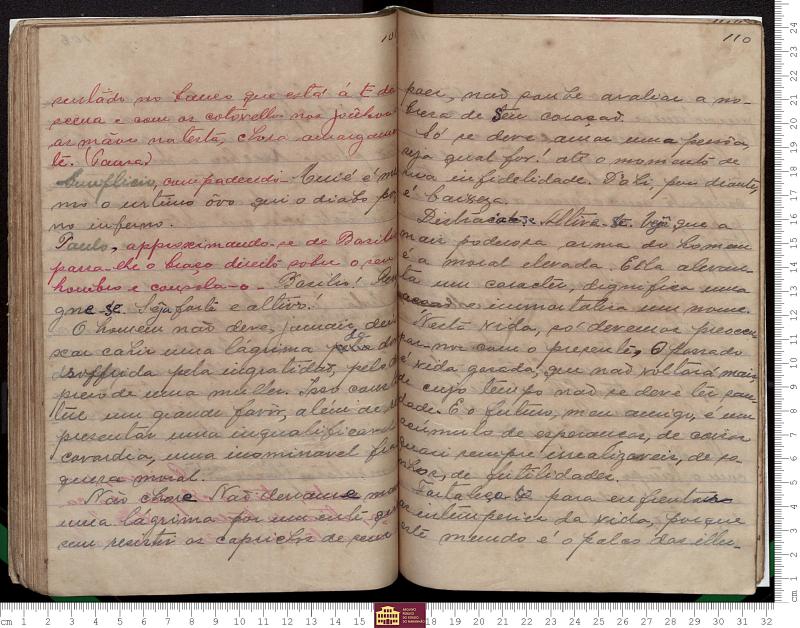 sentado no banco que está á E da
scena e com os cotovellos nos joêlhos e
as mãos na testa, chora amargamen
te. (Pausa)
compadecido. é mes
mo o urtimo ovo qui o diabo poz
no inferno.
Paulo, approximando-se de Basilio
passa-lhe o braço direito sobre o seu
hombro e consola-o. Basilio! Resi
gne-se. Seja forte e altivo!
O homem não deve, jamais, dei
xar cahir uma lágrima de
soffrida pela ingratidão, pelo des
preso de uma mulher. Isso cons
túe um grande favôr, além de re
presentar uma inqualificavel
covardia, uma inominavel fra
quesa moral.
Não chore Não derrame mais
uma lágrima por um ente que
sem resistir os caprichos de seus
110
paes, não soube avaliar a no-
bresa de seu coração.
Só se deve amar uma pessôa,
seja qual for! até o momento de
sua infidelidade. D'ahi, por diante,
é baixeza.
Altiva-se. Veja que a
mais poderosa arma do homem
é a moral elevada. Ella alevan-
ta um caracter, dignifica uma
acção e immortalisa um nome.
Nesta vida, só devemos preoccu
par-nos com o presente. O passado
é vida gosada, que não voltará mais,
de cujo tempo não se deve ter sau-
dade. E o futuro, meu amigo, é um
acúmulo de esperanças, de coisas
quasi sempre irrealizaveis, de so-
nhos, de futilidades.
Fortaleça-se para enfrentar
as intempéries da vida, porque
este mundo é o palco das illu-
cm 1 2 3 4 5 6 7 8 9 10 11 12 13 14 15 16 17 18 19 20 21 22 23 24 25 26 27 28 29 30 31 32
ARQUIVO PÚBLICO DO ESTADO DO MARANHÃO
cm 1 2 3 4 5 6 7 8 9 10 11 12 13 14 15 16 17 18 19 20 21 22 23 24